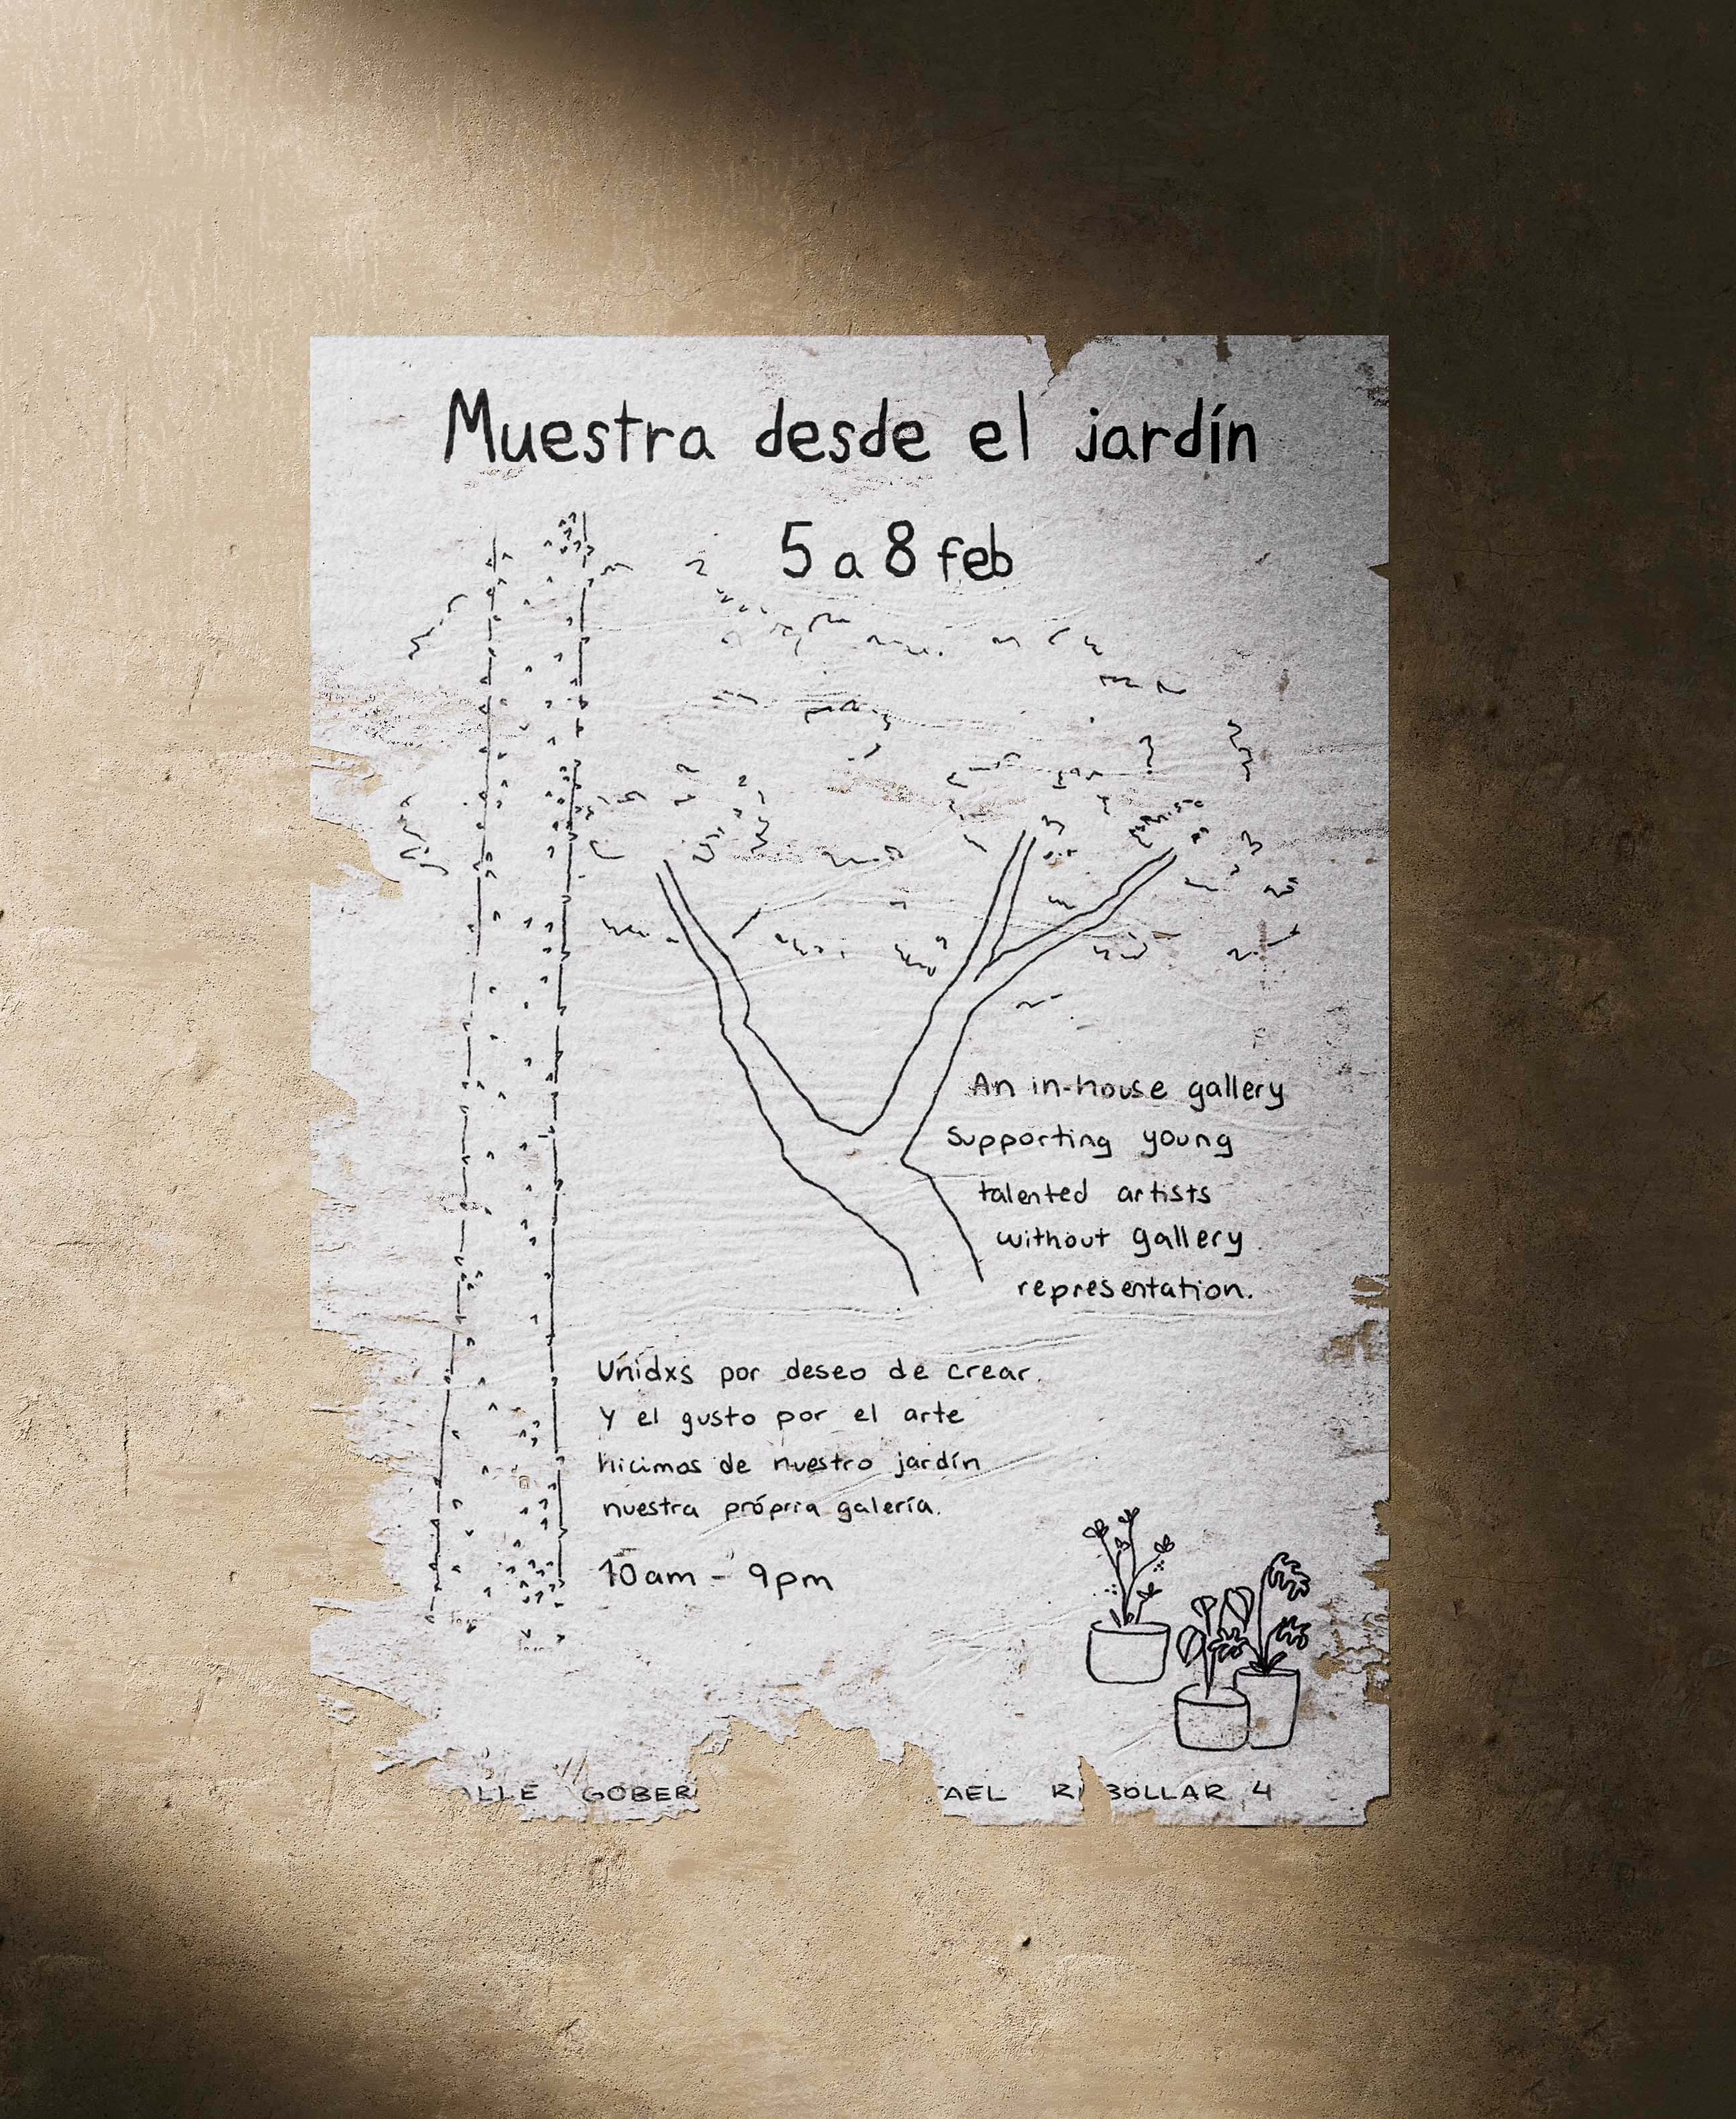 Muestra desde el jardín
5 a 8 feb
An in-house gallery
supporting young
talented artists
without gallery
representation.
Unidxs por deseo de crear
y el gusto por el arte
hicimos de nuestro jardín
nuestra própria galería.
10am - 9pm
4